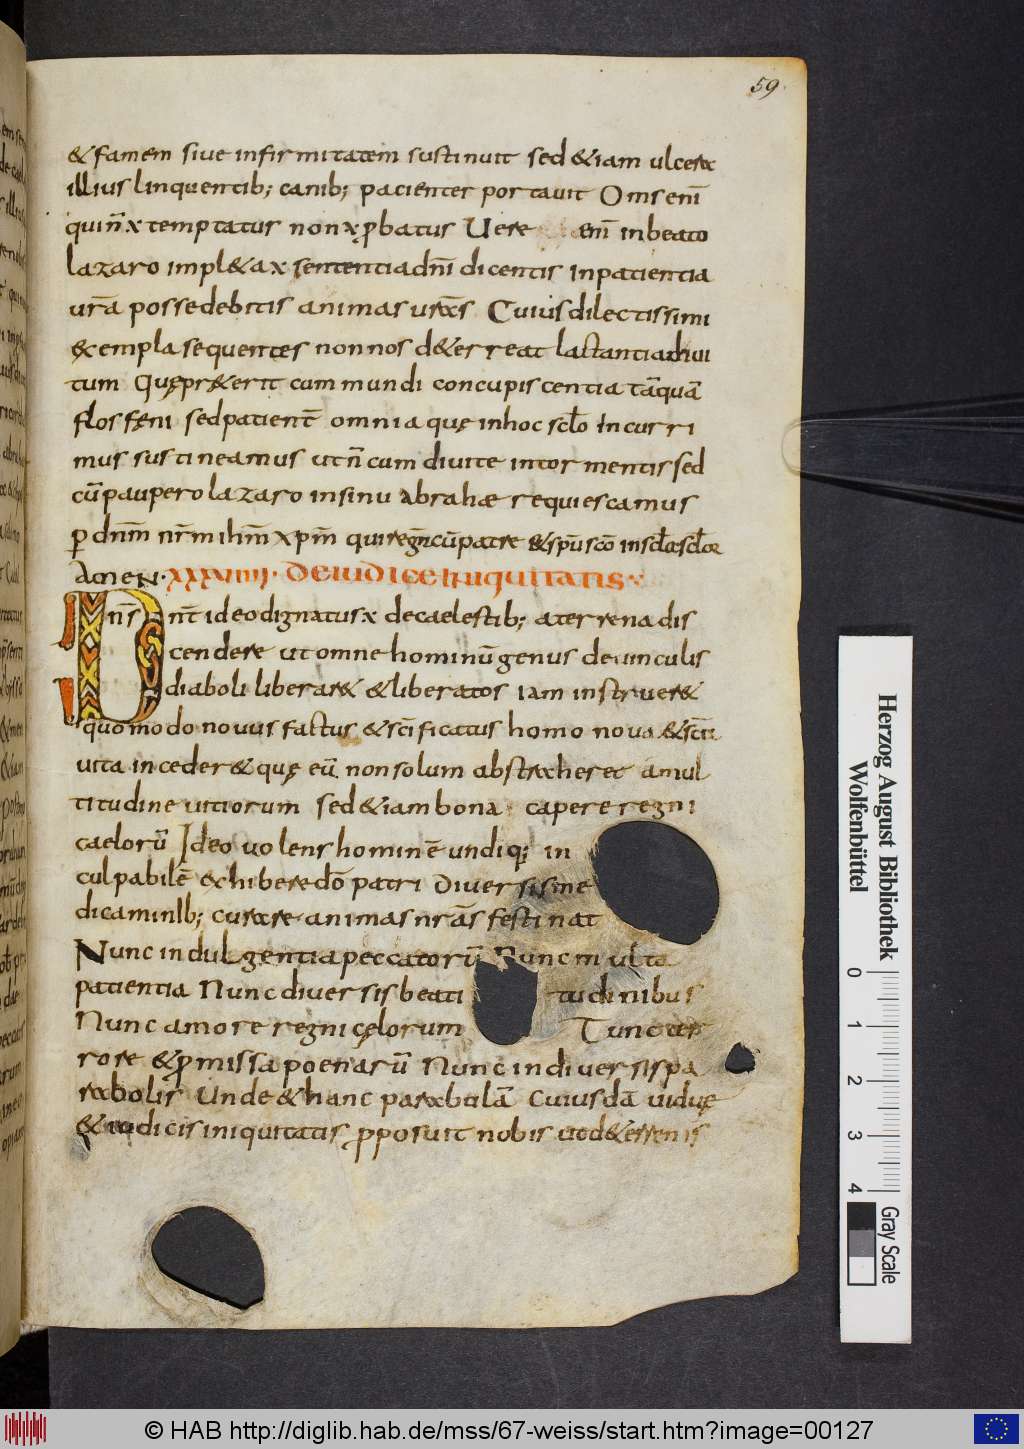 59
& famem siue infirmitatem sustinuit sed &iam ulcera
illius linquentib; canib; pacienter portauit
temptatus non Uere enī in beato
lazaro impl& sententia dnī dicentis In patientia
urā possedebitis animas urās Cuius dilectissimi
exempla sequentes non nos d&erreat lactantia diui
tum Quę pr&erit cum mundi concupiscentia tāquā
flos fęni sed patient̄ omnia quę in hoc scło incurri
mus sustineamus ut n̄ cum diuite in tormentis sed
cū paupero lazaro in sinu abrahæ requiescamus
ꝑ dnm̄ nr̄m ihm̄ xp̄m qui regn̄ cū patre & sp̄u scō in scła scłoꝝ
Amen· XXXVIIII· De iudice iniquitatis
Dn̄s n̄t ideo dignatus decaelestib; aterrena dis
cendere ut omne hominū genus de uinculis
diaboli liberar& &liberatos iam instruer&
quomodo nouus factus & scīficatus homo noua & sctā
uita inceder& quę eū non solum abstraheret a mul
titudine uitiorum sed &iam bona capere regni
caelorū Ideo uolens hominē undiq; in
culpabilē exhibere dō patri diuersis me
dicaminib; curare animas nrās festinat
Nunc indulgentia peccatorū Nunc multa
patientia Nunc diuersis beati tudinibus
Nunc amore regni cęlorum Tunc ter
rore & ꝓmissa poenarū Nunc in diuersis pa
rabolis Unde & hanc parabulā Cuiusdā uiduę
& iudicis iniquitatis ꝓposuit nobis
Herzog August Bibliothek
Wolfenbüttel
0 1 2 3 4
Gray Scale
© HAB http://diglib.hab.de/mss/67-weiss/start.htm?image=00127